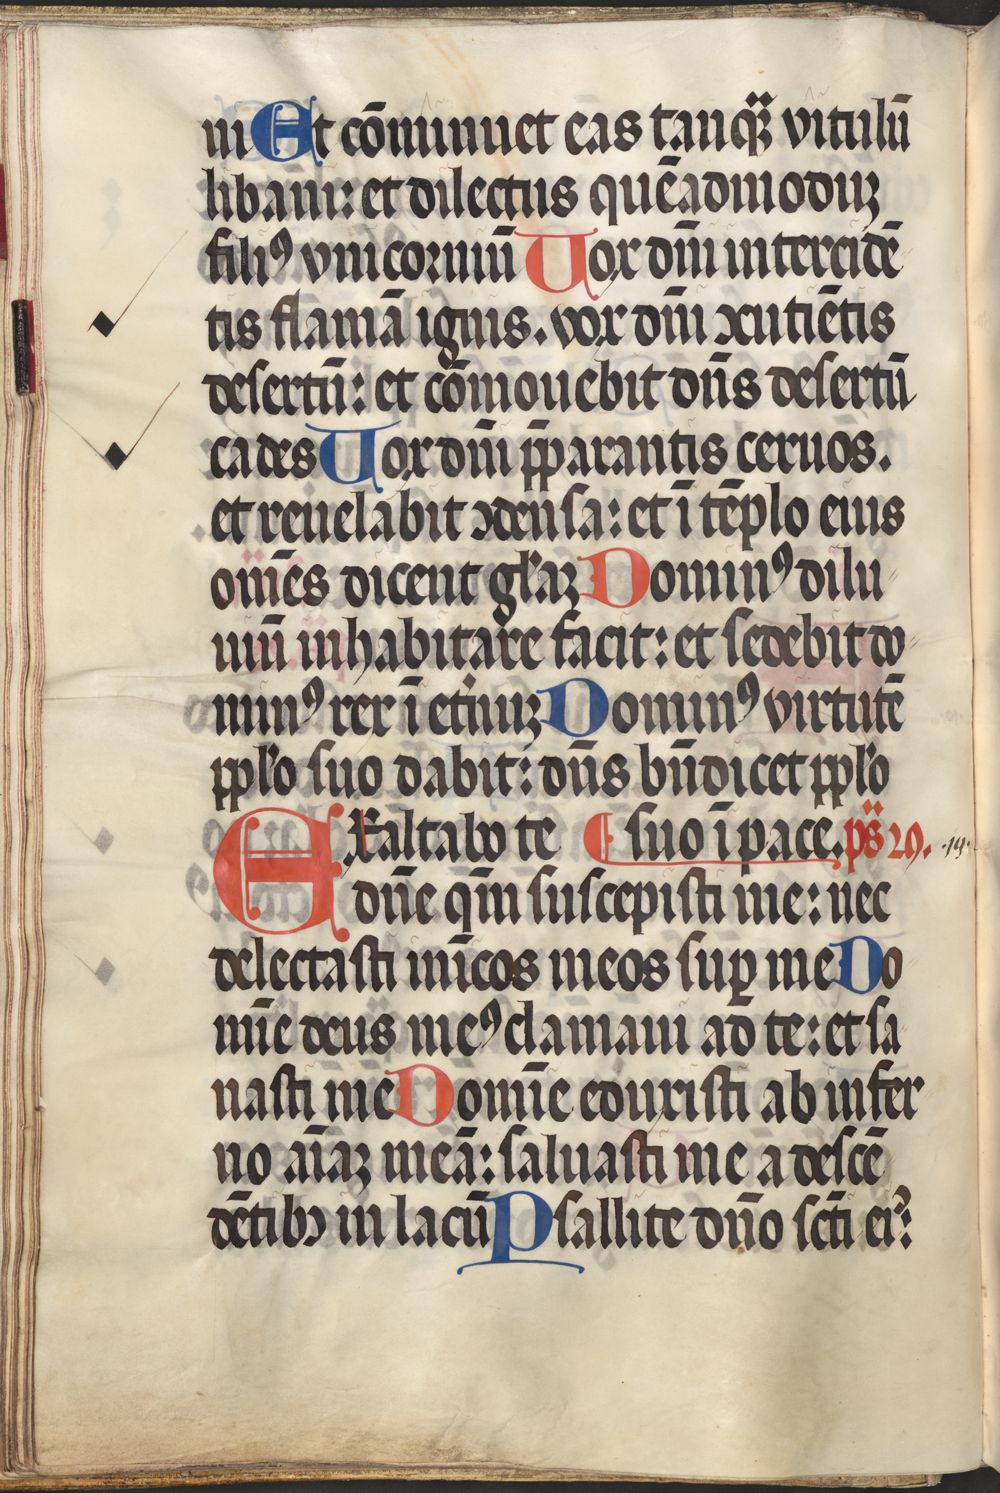 ni Et cōminuet eas tanq̃ȝ vitulū
libani: et dilectus quēadmoduȝ
filiꝰ vnicorniū Uox dñi intercidē
tis flāmā ignis. vox dñi ꝯcutiētis
desertū: et cōmouebit dñs desertū
cades Uox dñi p̄parantis ceruos.
et reuelabit ꝯdensa: et ī tēplo eius
omēs dicent gl̃aȝ Dominꝰ dilu
uiū inhabitare facit: et sedebit do
minꝰ rex ī et̃nuȝ Dominꝰ virtutē
ppl̃o suo dabit: dñs bñdicet ppl̃o
Exaltabo te ¶ suo ī pace. ps̃ 29. ·19·
dñe qm̄ suscepisti me: nec
delectasti inīcos meos suꝑ me Do
mīe deus meꝰ clamaui ad te: et sa
nasti me Domīe eduxisti ab infer
no aīaȝ meā: saluasti me a descē
dētibꝫ in lacū Psallite dño sc̄ti eiꝰ: